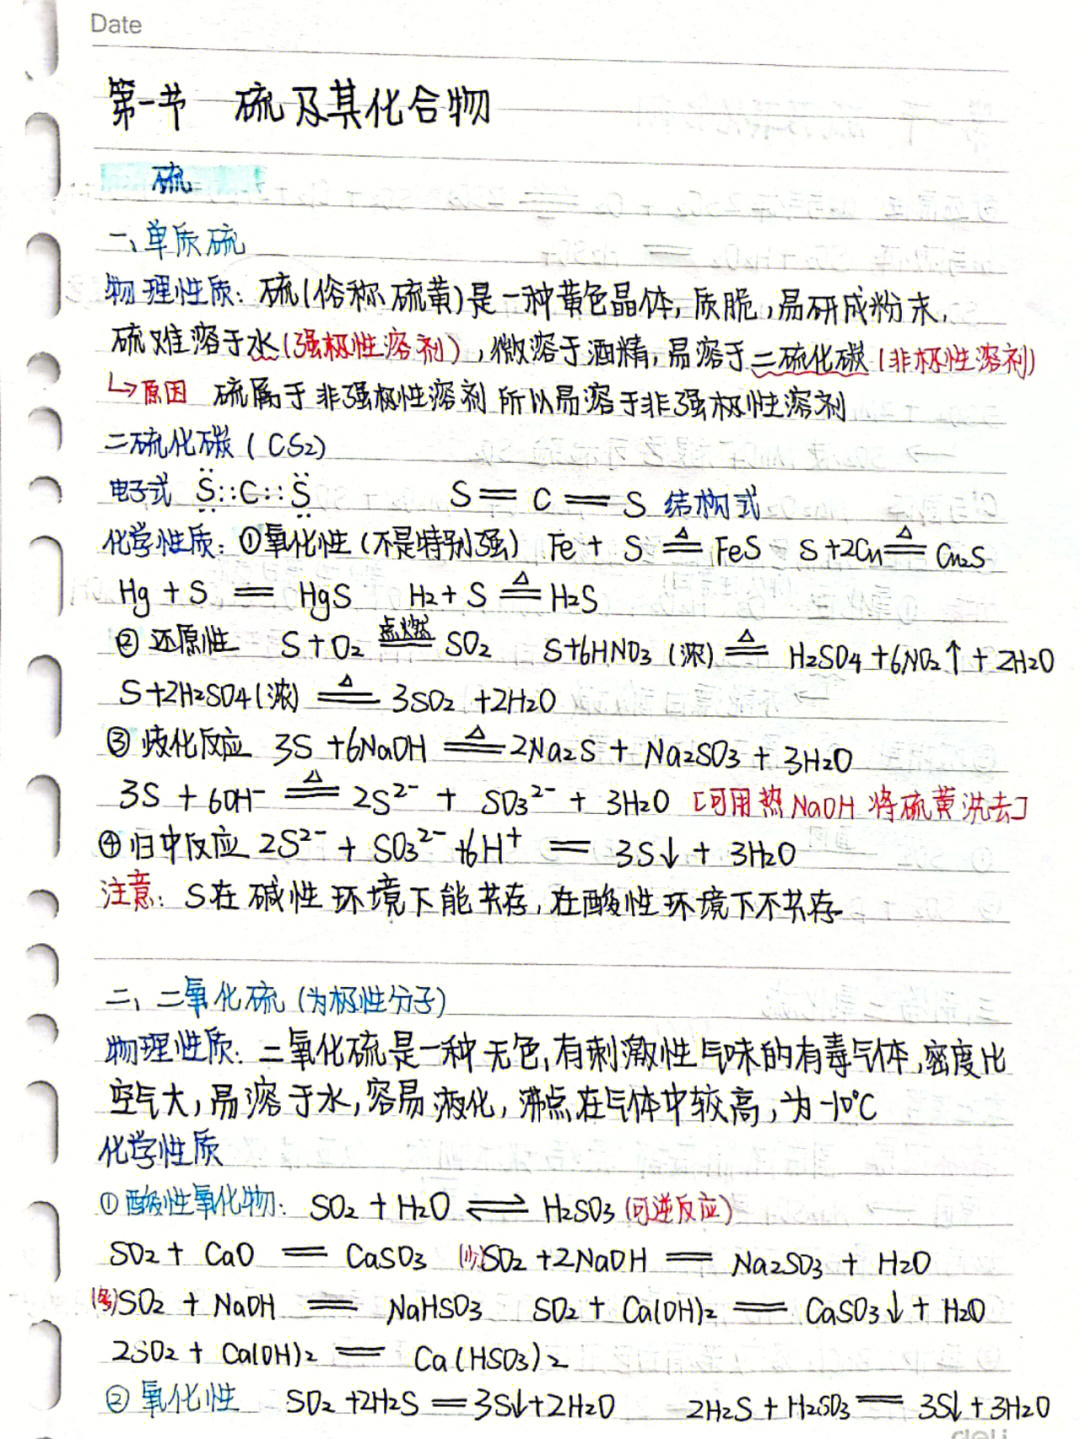 Date
第一节 硫及其化合物
硫
一、单质硫
物理性质：硫(俗称硫黄)是一种黄色晶体,质脆,易研成粉末,
硫难溶于水(强极性溶剂),微溶于酒精,易溶于二硫化碳(非极性溶剂)
↳原因 硫属于非强极性溶剂所以易溶于非强极性溶剂
二硫化碳(CS₂)
电子式 S::C::S S=C=S 结构式
化学性质：①氧化性(不是特别强) Fe+S ≜ FeS S+2Cu ≜ Cu₂S
Hg+S = HgS H₂+S ≜ H₂S
②还原性 S+O₂ 点燃= SO₂ S+6HNO₃(浓) ≜ H₂SO₄+6NO₂↑+2H₂O
S+2H₂SO₄(浓) ≜ 3SO₂+2H₂O
③歧化反应 3S+6NaOH ≜ 2Na₂S+Na₂SO₃+3H₂O
3S+6OH⁻ ≜ 2S²⁻+SO₃²⁻+3H₂O [可用热NaOH将硫黄洗去]
④归中反应 2S²⁻+SO₃²⁻+6H⁺ = 3S↓+3H₂O
注意：S在碱性环境下能共存,在酸性环境下不共存
二、二氧化硫(为极性分子)
物理性质：二氧化硫是一种无色,有刺激性气味的有毒气体,密度比
空气大,易溶于水,容易液化,沸点在气体中较高,为-10℃
化学性质
①酸性氧化物：SO₂+H₂O ⇌ H₂SO₃(可逆反应)
SO₂+CaO = CaSO₃ (少)SO₂+2NaOH = Na₂SO₃+H₂O
(多)SO₂+NaOH = NaHSO₃ SO₂+Ca(OH)₂ = CaSO₃↓+H₂O
2SO₂+Ca(OH)₂ = Ca(HSO₃)₂
②氧化性 SO₂+2H₂S=3S↓+2H₂O 2H₂S+H₂SO₃=3S↓+3H₂O
deli